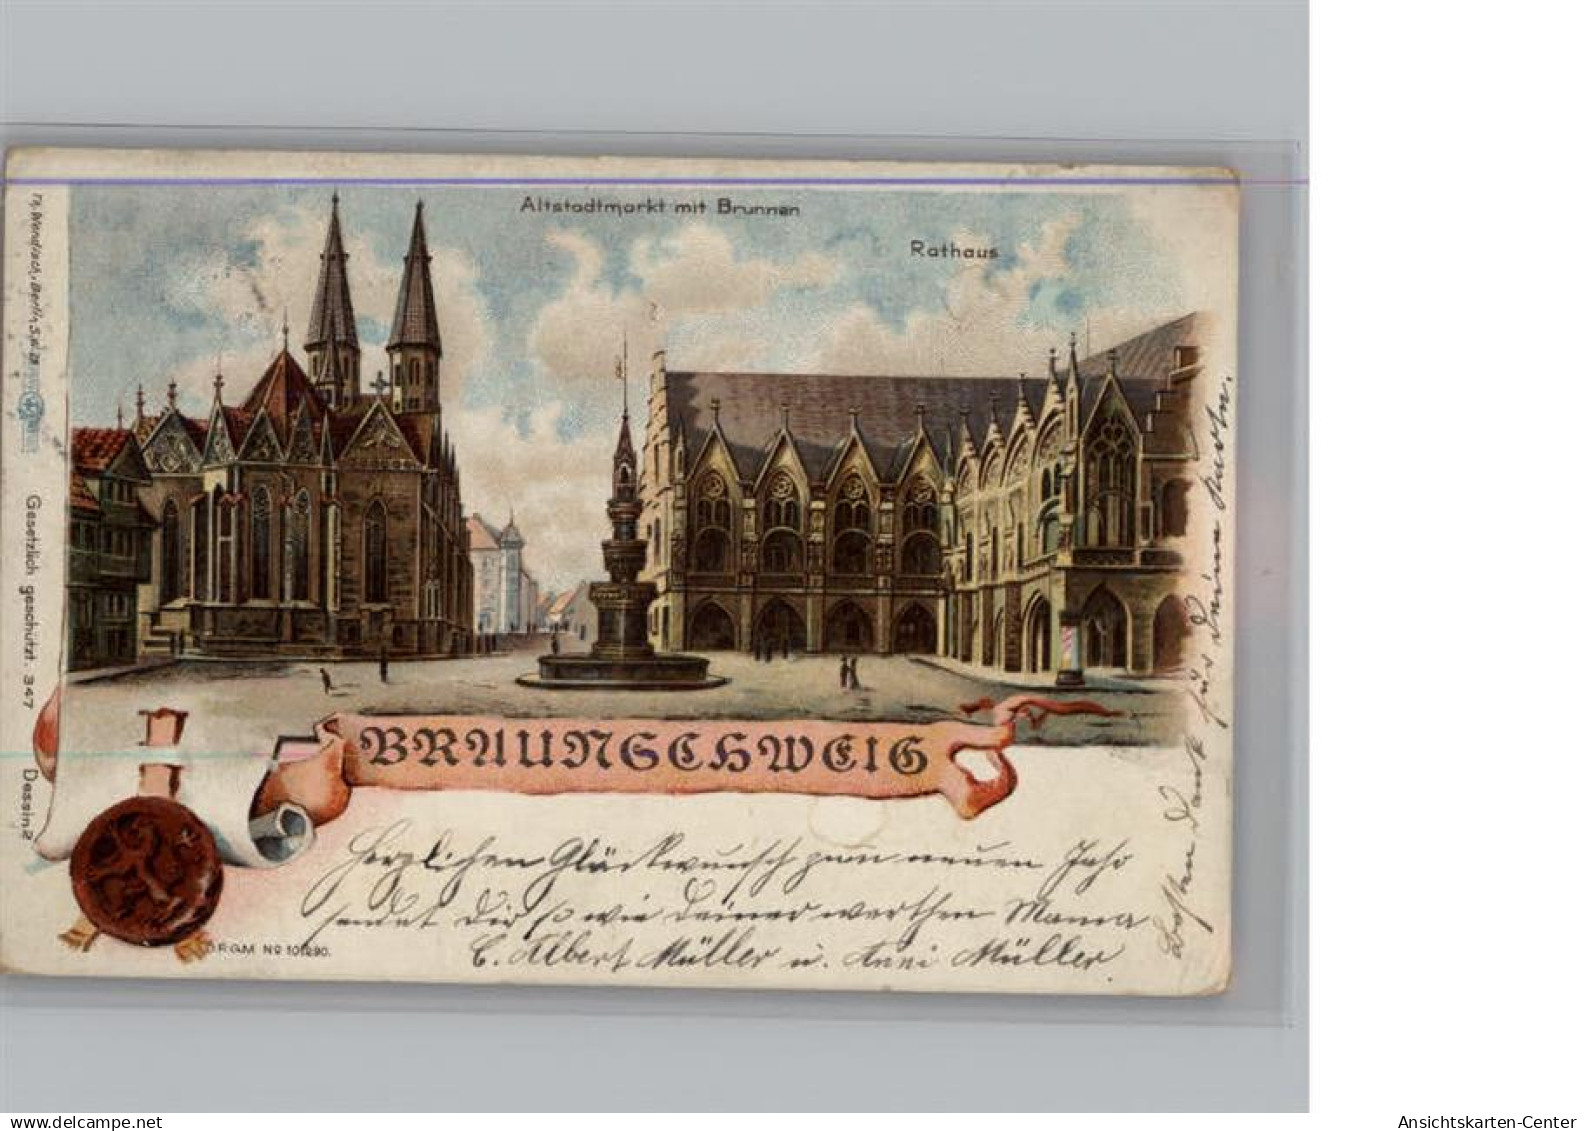 Altstadtmarkt mit Brunnen
Rathaus
Th. Wendisch, Berlin S.W. 29
Gesetzlich geschützt. 347
Dessin 2
BRAUNSCHWEIG
Herzlichen Glückwunsch zum neuen Jahr
sendet Dir so wie Deiner werthen Mama
C. Albert Müller u. Anni Müller.
Besten Dank für Deine Karte.
D.R.G.M No 101290.
delcampe.net
Ansichtskarten-Center